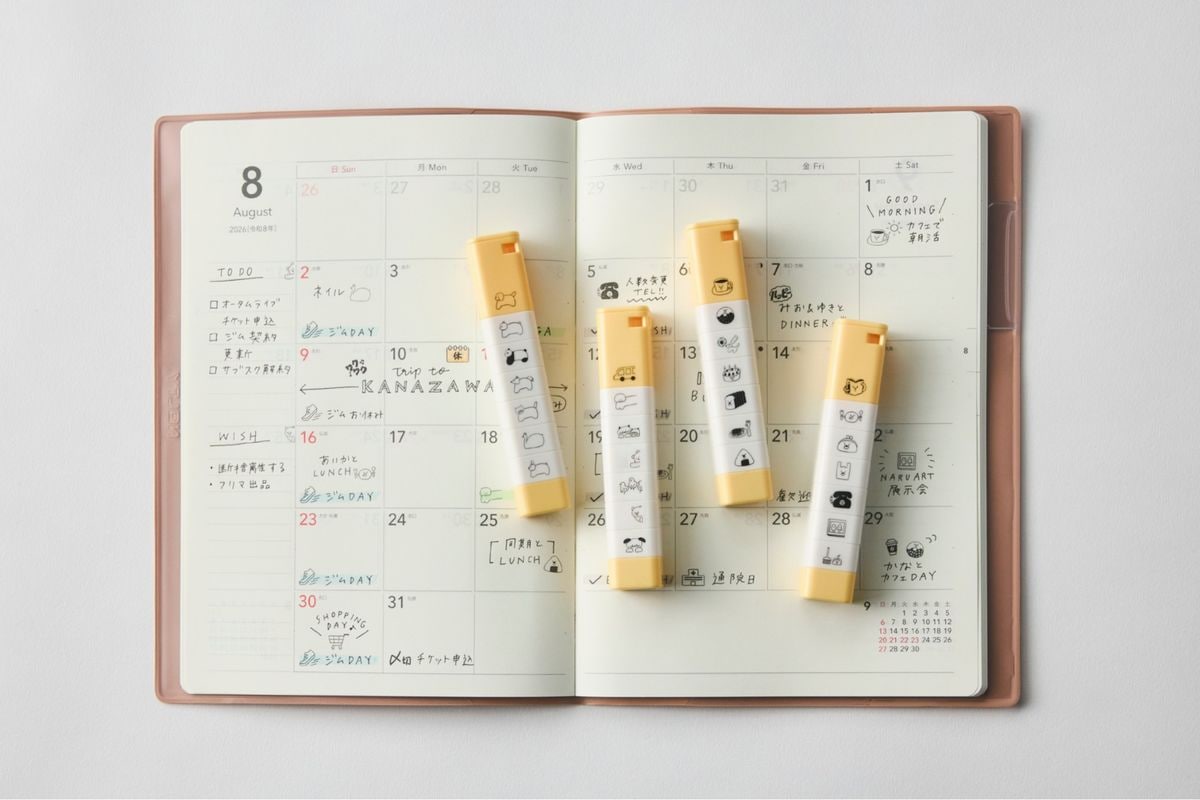 8
August
2026(令和8年)
日 Sun
月 Mon
火 Tue
水 Wed
木 Thu
金 Fri
土 Sat
26
27
28
29
30
31
1
GOOD
MORNING
カフェで
朝活
TO DO
オータムライブ
チケット申込
ジム契約
更新
サブスク解約
2
ネイル
ジムDAY
3
5
人数変更
TEL!!
6
7
ハッピー
みお&ゆきと
DINNER
8
9
ワクワク
ジムお休み
10
休
trip to
KANAZAWA
12
13
14
8
WISH
・断捨離する
・フリマ出品
16
あいかと
LUNCH
ジムDAY
17
18
19
20
21
NARU ART
展示会
23
ジムDAY
24
25
同期と
LUNCH
26
27
通院日
28
29
かなと
カフェDAY
30
SHOPPING
DAY
ジムDAY
31
〆切 チケット申込
9
日 月 火 水 木 金 土
1 2 3 4 5
6 7 8 9 10 11 12
13 14 15 16 17 18 19
20 21 22 23 24 25 26
27 28 29 30